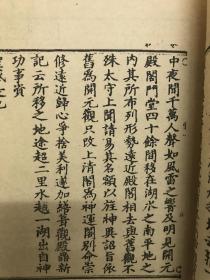 中夜間千萬人聲如風雷之響及明見開元
殿閣門堂四十餘間移在湖水之南平地之
內其所布列形勢遠近殿閣相去與舊觀不
殊太守上聞請易其名額以旌神異詔旨依
舊為開元觀只改上清閣為神運閣別命崇
修遠近歸心爭捨美利遂加繕葺觀殿鼎新
記云所移之地途超二里水越一湖出自神
功事資